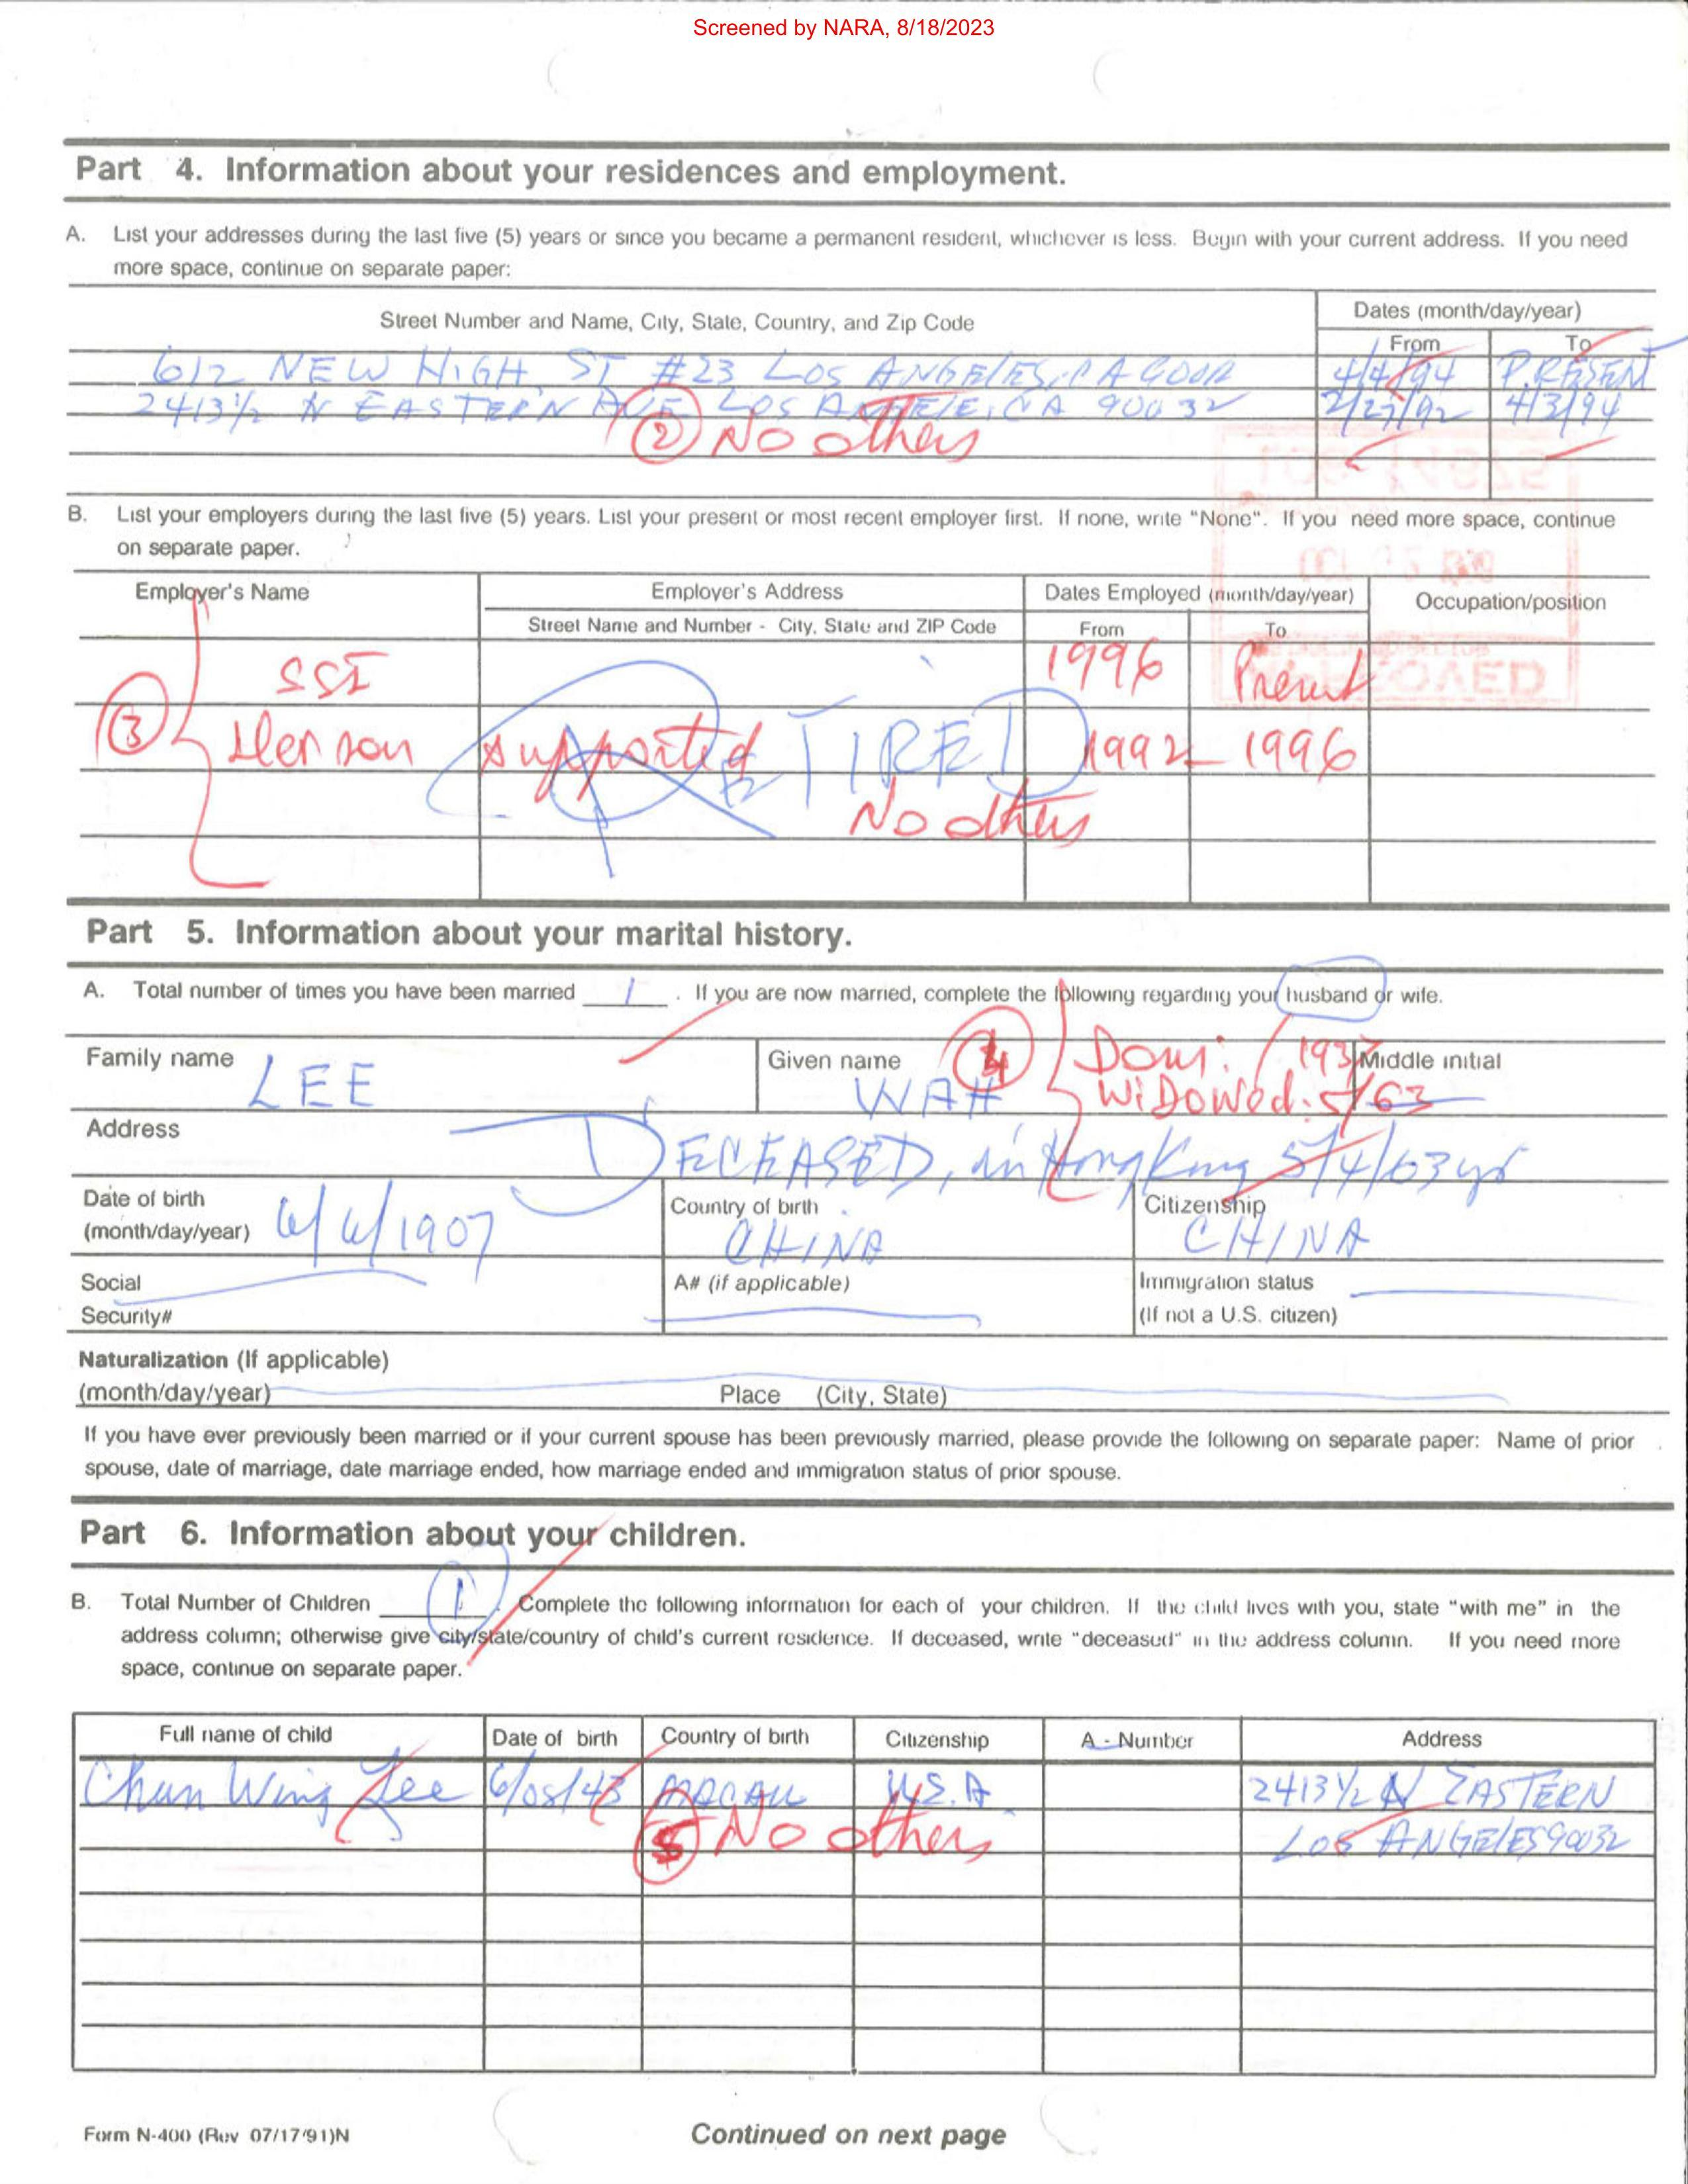 Screened by NARA, 8/18/2023
Part 4. Information about your residences and employment.
A. List your addresses during the last five (5) years or since you became a permanent resident, whichever is less. Begin with your current address. If you need
more space, continue on separate paper:
Street Number and Name, City, State, Country, and Zip Code
Dates (month/day/year)
From To
612 NEW HIGH ST #23 LOS ANGELES, CA 90012 4/4/94 PRESENT
2413 1/2 N EASTERN AVE LOS ANGELE, CA 90032 2/27/92 4/3/94
2 No others
B. List your employers during the last five (5) years. List your present or most recent employer first. If none, write "None". If you need more space, continue
on separate paper.
Employer's Name Employer's Address Dates Employed (month/day/year) Occupation/position
Street Name and Number - City, State and ZIP Code From To
SSI 1996 Present
3 Her son supported RETIRED 1992 - 1996
No others
Part 5. Information about your marital history.
A. Total number of times you have been married 1 . If you are now married, complete the following regarding your husband or wife.
Family name LEE Given name WAH 4 Dom: 1937 Middle initial
WiDOWed: 5/63
Address DECEASED, in Hong Kong 5/4/63 yr
Date of birth
(month/day/year) 6/6/1907 Country of birth CHINA Citizenship CHINA
Social
Security# A# (if applicable) Immigration status
(If not a U.S. citizen)
Naturalization (If applicable)
(month/day/year) Place (City, State)
If you have ever previously been married or if your current spouse has been previously married, please provide the following on separate paper: Name of prior
spouse, date of marriage, date marriage ended, how marriage ended and immigration status of prior spouse.
Part 6. Information about your children.
B. Total Number of Children 1 . Complete the following information for each of your children. If the child lives with you, state "with me" in the
address column; otherwise give city/state/country of child's current residence. If deceased, write "deceased" in the address column. If you need more
space, continue on separate paper.
Full name of child Date of birth Country of birth Citizenship A - Number Address
Chun Wing Lee 6/05/43 MACAU U.S.A. 2413 1/2 N EASTERN
5 No others LOS ANGELES 90032
Form N-400 (Rev 07/17/91)N
Continued on next page